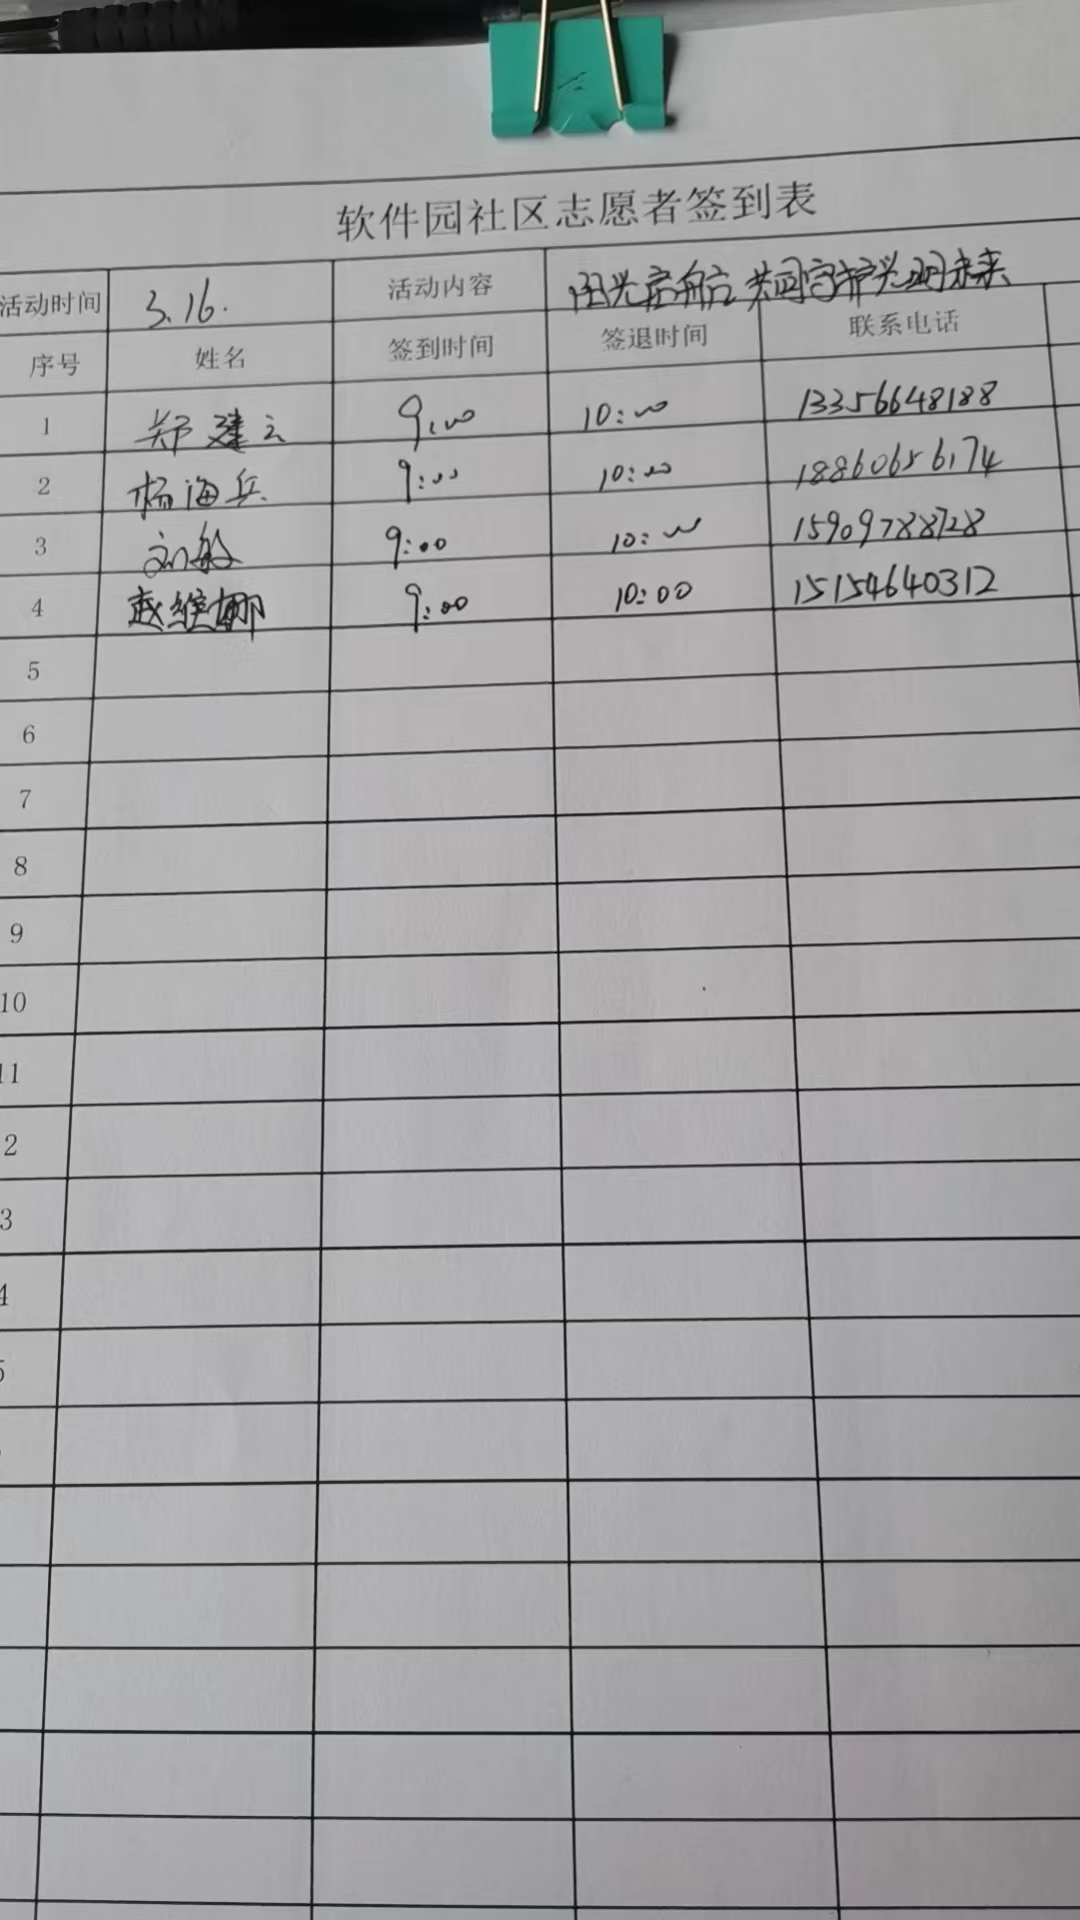 软件园社区志愿者签到表
活动时间 3.16. 活动内容 阳光启航 共同守护光明未来
序号 姓名 签到时间 签退时间 联系电话
1 郑建云 9:00 10:00 13356648188
2 杨海兵 9:00 10:00 18860656174
3 刘敏 9:00 10:00 15909788728
4 赵维娜 9:00 10:00 15154640312
5
6
7
8
9
10
11
2
3
4
5